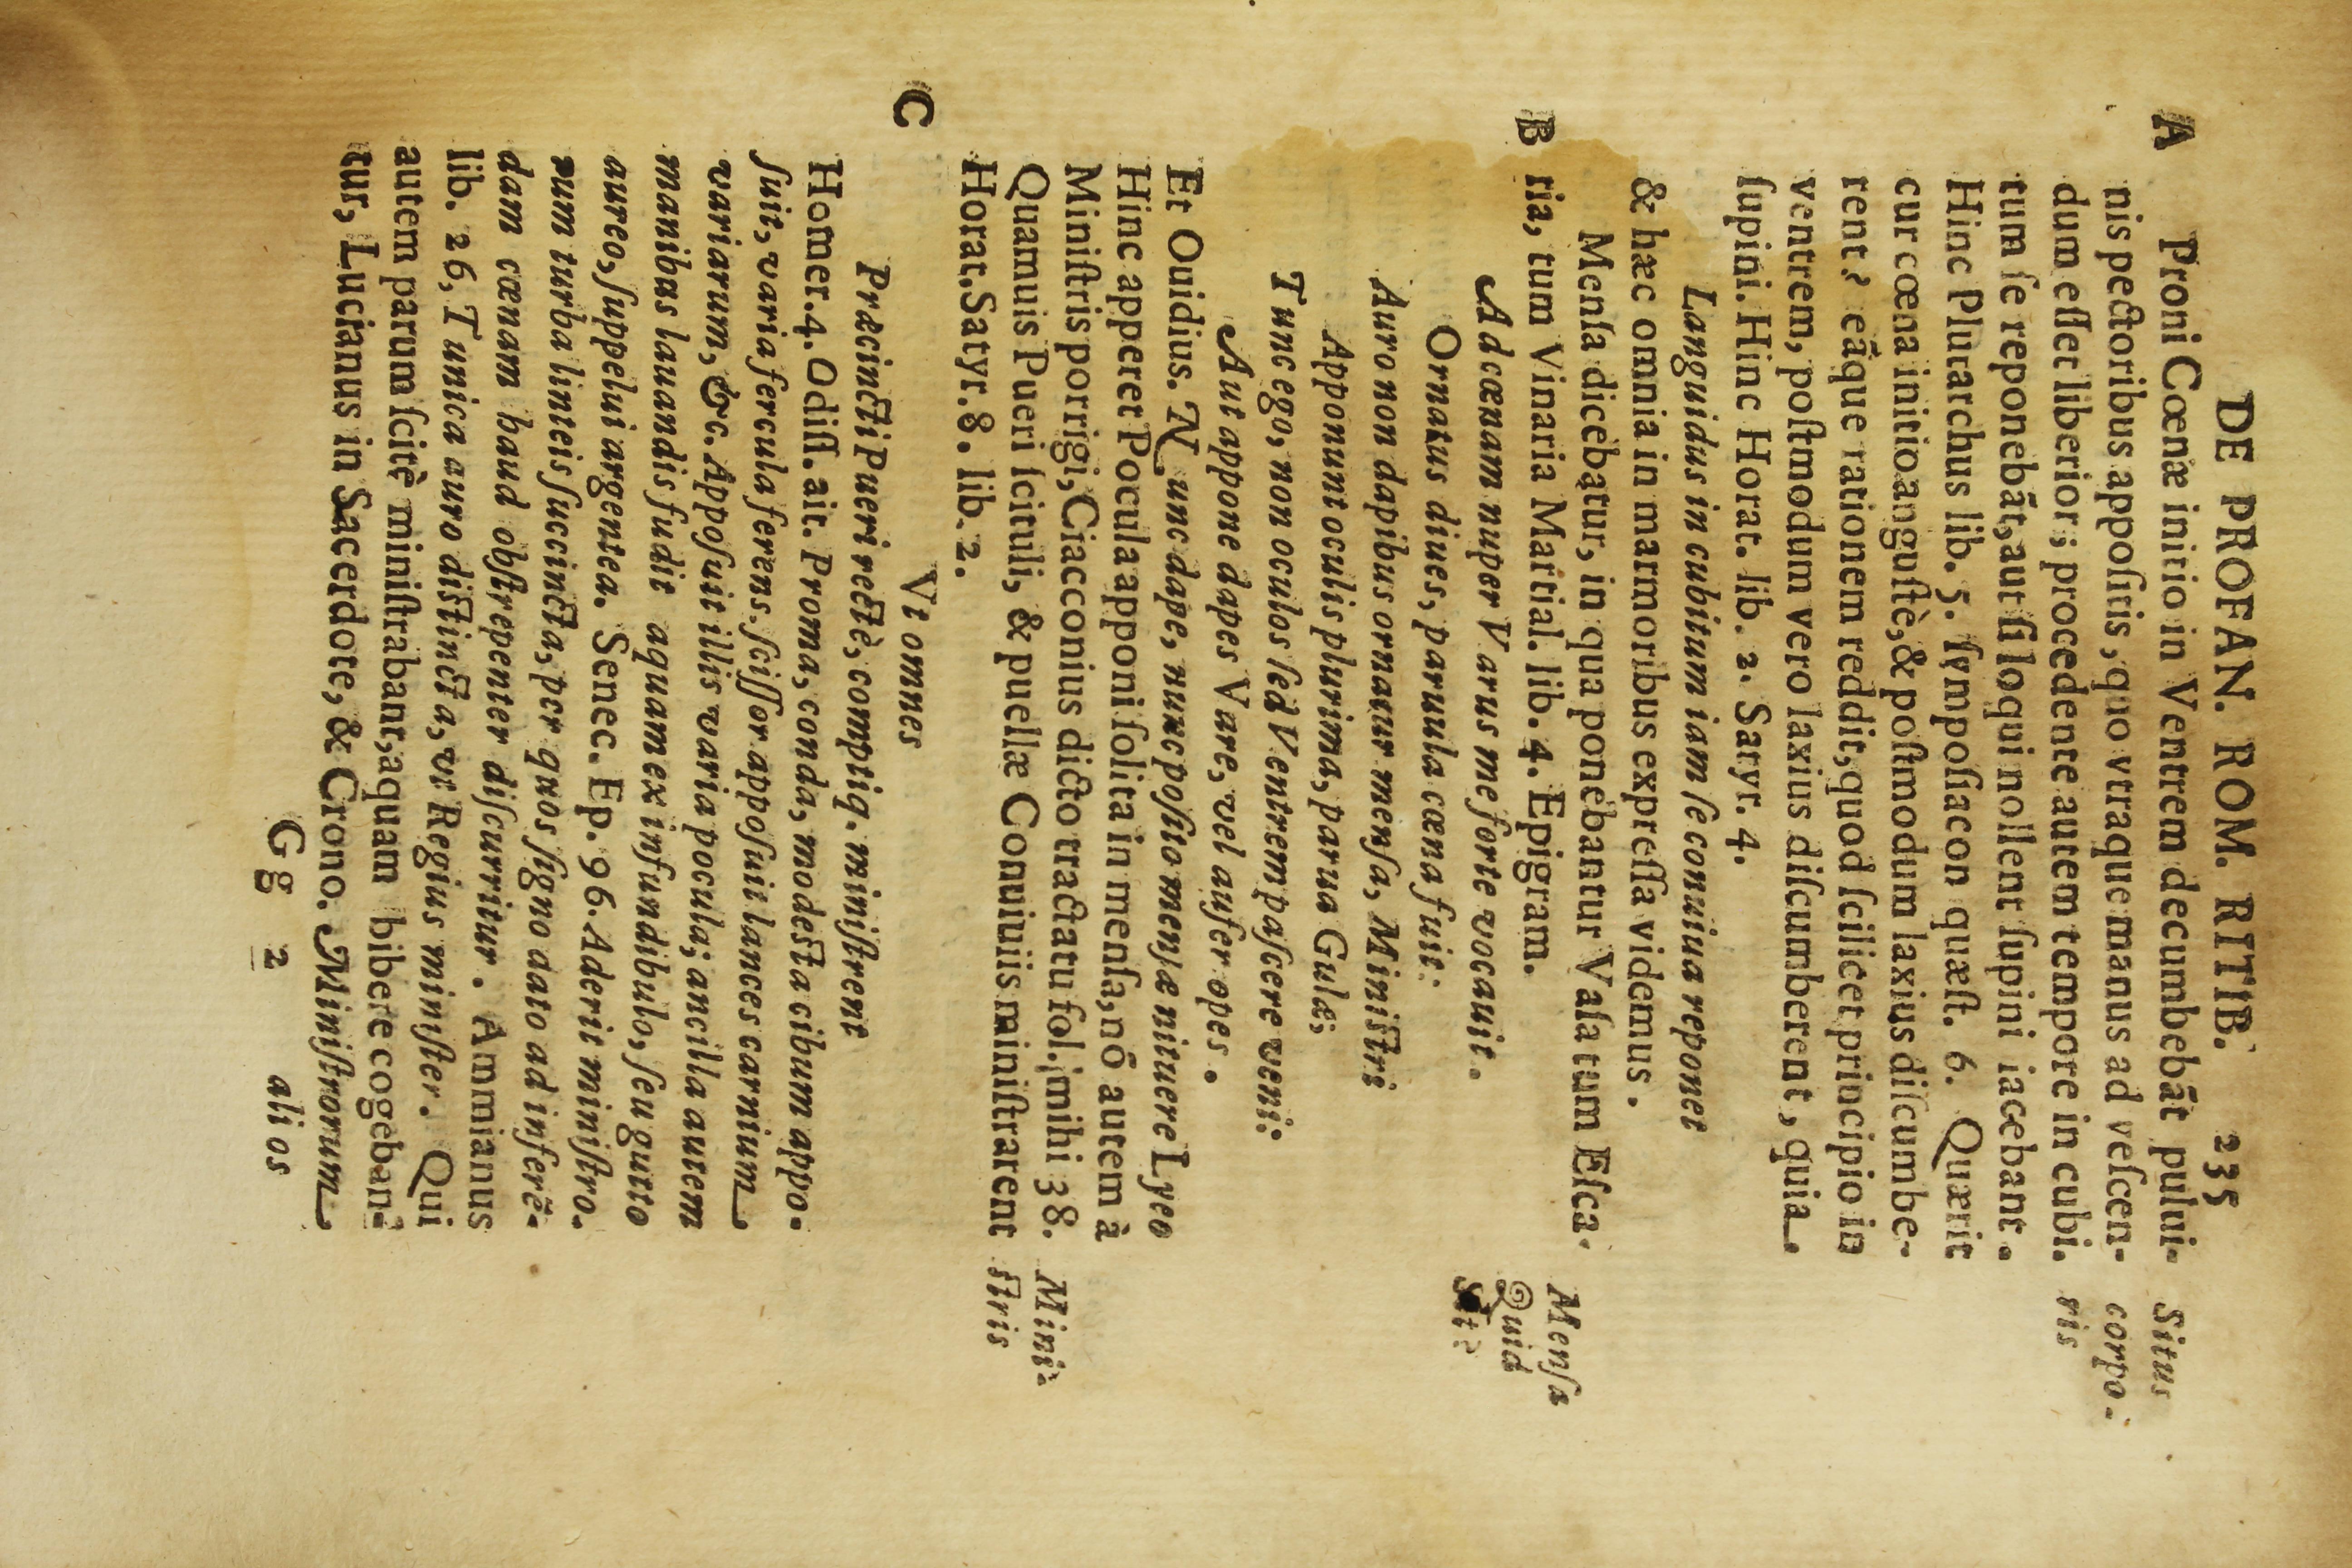 DE PROFAN. ROM. RITIB. 235
A Proni Cœnæ initio in Ventrem decumbebāt pului-
nis pectoribus appoſitis, quo vtraque manus ad veſcen-
dum eſſet liberior; procedente autem tempore in cubi.
tum ſe reponebāt, aut ſi loqui nollent ſupini iacebant.
Hinc Plutarchus lib. 5. ſympoſiacon quæſt. 6. Quærit
cur cœna initio anguſtè, & poſtmodum laxius diſcumbe-
rent? eāque rationem reddit, quod ſcilicet principio in
ventrem, poſtmodum vero laxius diſcumberent, quia
ſupini. Hinc Horat. lib. 2. Satyr. 4.
Languidus in cubitum iam ſe conuiua reponet
& hæc omnia in marmoribus expreſſa videmus.
Menſa dicebatur, in qua ponebantur Vaſa tum Eſca-
B ria, tum Vinaria Martial. lib. 4. Epigram.
Ad cœnam nuper Varus me forte vocauit.
Ornatus diues, paruula cœna fuit:
Auro non dapibus ornatur menſa, Miniſtri
Apponunt oculis plurima, parua Gulæ;
Tunc ego, non oculos ſed Ventrem paſcere veni:
Aut appone dapes Vare, vel aufer opes.
Et Ouidius. Nunc dape, nunc poſito menſæ nituere Lyeo
Hinc apperet Pocula apponi ſolita in menſa, nō autem à
Miniſtris porrigi, Ciacconius dicto tractatu fol. mihi 38.
Quamuis Pueri ſcituli, & puellæ Conuiuiis miniſtrarent
Horat. Satyr. 8. lib. 2.
C Vt omnes
Præcincti Pueri rectè, comptiq. miniſtrent
Homer. 4. Odiſſ. ait. Proma, conda, modeſta cibum appo-
ſuit, varia fercula ferens. ſciſſor appoſuit lances carnium
variarum, &c. Appoſuit illis varia pocula; ancilla autem
manibus lauandis fudit aquam ex infundibulo, ſeu gutto
aureo, ſuppelui argentea. Senec. Ep. 96. Aderit miniſtro.
rum turba linteis ſuccincta, per quos ſigno dato ad inferē-
dam cœnam haud obſtrepenter diſcurritur. Ammianus
lib. 26, Tunica auro diſtincta, vt Regius miniſter. Qui
autem parum ſcitè miniſtrabant, aquam bibere cogeban-
tur, Lucianus in Sacerdote, & Crono. Miniſtrorum
Gg 2 alios
Situs
corpo-
ris
Menſa
Quid
ſit?
Mini-
ſtris